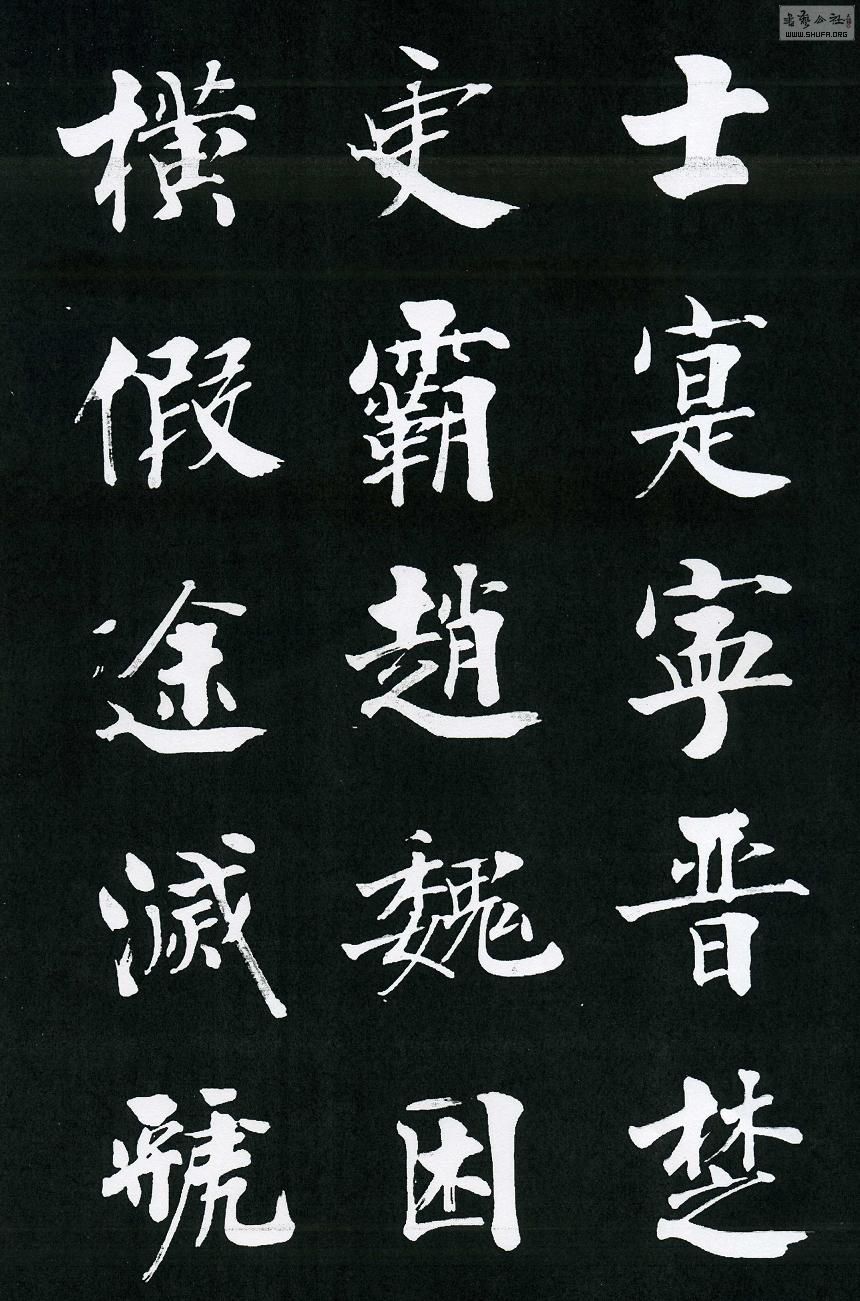 士寔寧晋楚
更霸趙魏困
橫假途滅虢
書藝公社
WWW.SHUFA.ORG